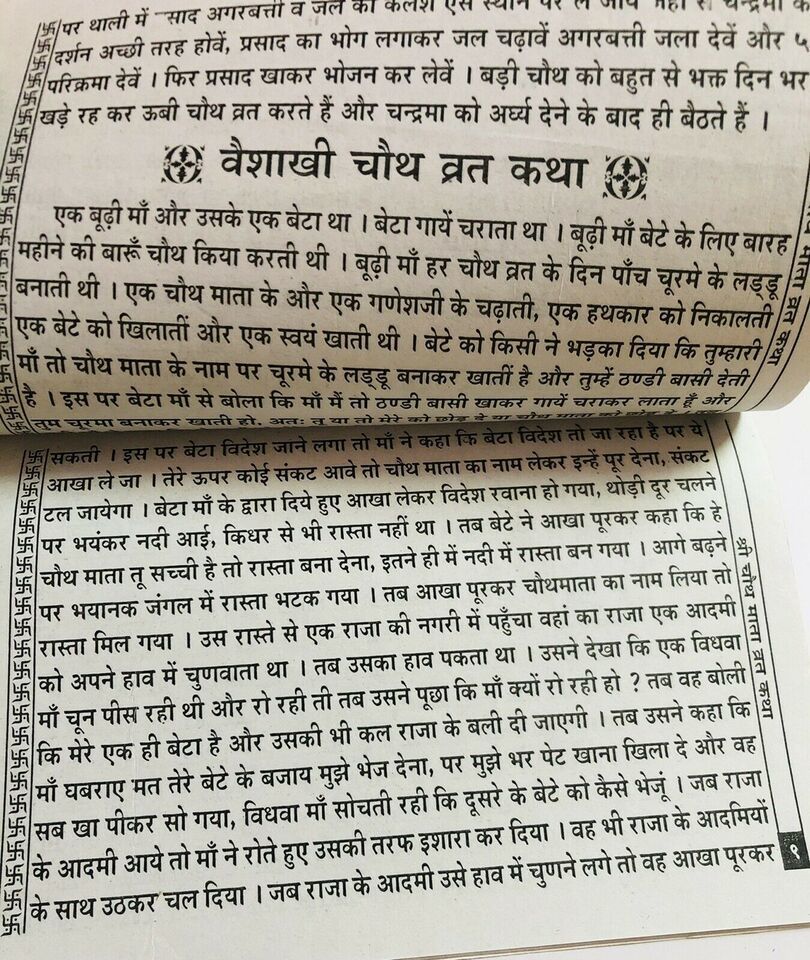 पर थाली में साद अगरबत्ती व जल का कलश ऐसे स्थान पर ले जाय जहां से चन्द्रमा के
दर्शन अच्छी तरह होवें, प्रसाद का भोग लगाकर जल चढ़ावें अगरबत्ती जला देवें और ५
परिक्रमा देवें । फिर प्रसाद खाकर भोजन कर लेवें । बड़ी चौथ को बहुत से भक्त दिन भर
खड़े रह कर ऊबी चौथ व्रत करते हैं और चन्द्रमा को अर्घ्य देने के बाद ही बैठते हैं ।
वैशाखी चौथ व्रत कथा
एक बूढ़ी माँ और उसके एक बेटा था । बेटा गायें चराता था । बूढ़ी माँ बेटे के लिए बारह
महीने की बारूँ चौथ किया करती थी । बूढ़ी माँ हर चौथ व्रत के दिन पाँच चूरमे के लड्डू
बनाती थी । एक चौथ माता के और एक गणेशजी के चढ़ाती, एक हथकार को निकालती
एक बेटे को खिलातीं और एक स्वयं खाती थी । बेटे को किसी ने भड़का दिया कि तुम्हारी
माँ तो चौथ माता के नाम पर चूरमे के लड्डू बनाकर खातीं है और तुम्हें ठण्डी बासी देती
है । इस पर बेटा माँ से बोला कि माँ मैं तो ठण्डी बासी खाकर गायें चराकर लाता हूँ और
तुम चूरमा बनाकर खाती हो. अतः तू या तो मेरे को छोड़ दे या चौथ माता को छोड़ दे
सकती । इस पर बेटा विदेश जाने लगा तो माँ ने कहा कि बेटा विदेश तो जा रहा है पर ये
आखा ले जा । तेरे ऊपर कोई संकट आवे तो चौथ माता का नाम लेकर इन्हें पूर देना, संकट
टल जायेगा । बेटा माँ के द्वारा दिये हुए आखा लेकर विदेश रवाना हो गया, थोड़ी दूर चलने
पर भयंकर नदी आई, किधर से भी रास्ता नहीं था । तब बेटे ने आखा पूरकर कहा कि हे
चौथ माता तू सच्ची है तो रास्ता बना देना, इतने ही में नदी में रास्ता बन गया । आगे बढ़ने
पर भयानक जंगल में रास्ता भटक गया । तब आखा पूरकर चौथमाता का नाम लिया तो
रास्ता मिल गया । उस रास्ते से एक राजा की नगरी में पहुँचा वहां का राजा एक आदमी
को अपने हाव में चुणवाता था । तब उसका हाव पकता था । उसने देखा कि एक विधवा
माँ चून पीस रही थी और रो रही ती तब उसने पूछा कि माँ क्यों रो रही हो ? तब वह बोली
कि मेरे एक ही बेटा है और उसकी भी कल राजा के बली दी जाएगी । तब उसने कहा कि
माँ घबराए मत तेरे बेटे के बजाय मुझे भेज देना, पर मुझे भर पेट खाना खिला दे और वह
सब खा पीकर सो गया, विधवा माँ सोचती रही कि दूसरे के बेटे को कैसे भेजूं । जब राजा
के आदमी आये तो माँ ने रोते हुए उसकी तरफ इशारा कर दिया । वह भी राजा के आदमियों
के साथ उठकर चल दिया । जब राजा के आदमी उसे हाव में चुणने लगे तो वह आखा पूरकर
माता व्रत कथा
श्री चौथ माता व्रत कथा
९